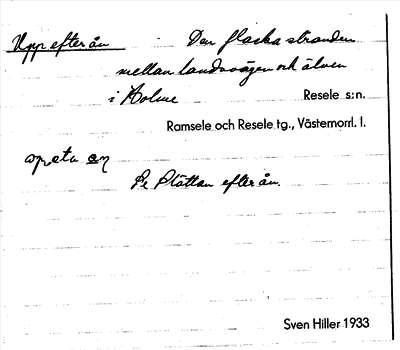 Upp efter ån Den flacka stranden
mellan landsvägen och älven
i Holme Resele s:n.
Ramsele och Resele tg., Västernorrl. l.
Se Plättan efter ån.
Sven Hiller 1933